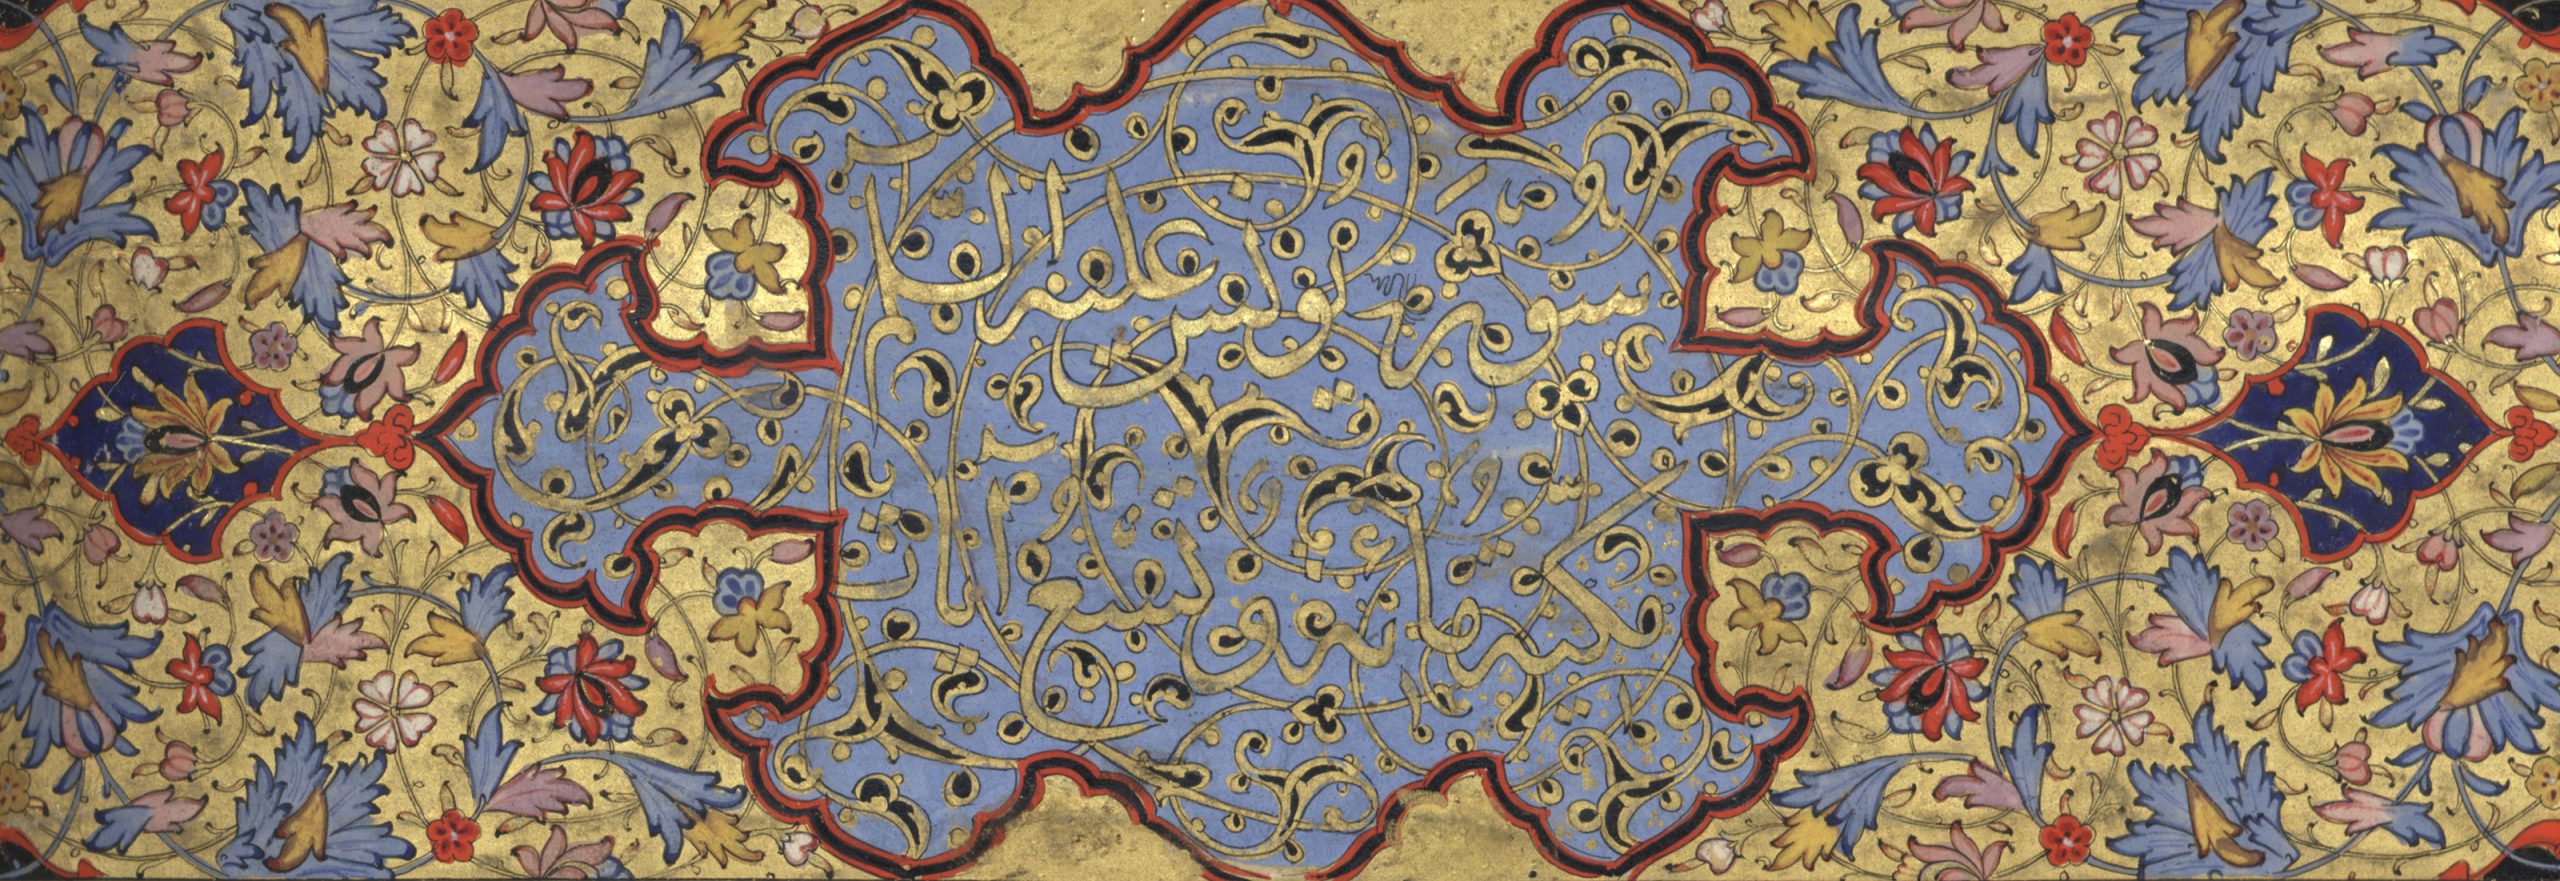 سورة يونس عليه السلام
مكية مائة وتسع آيات